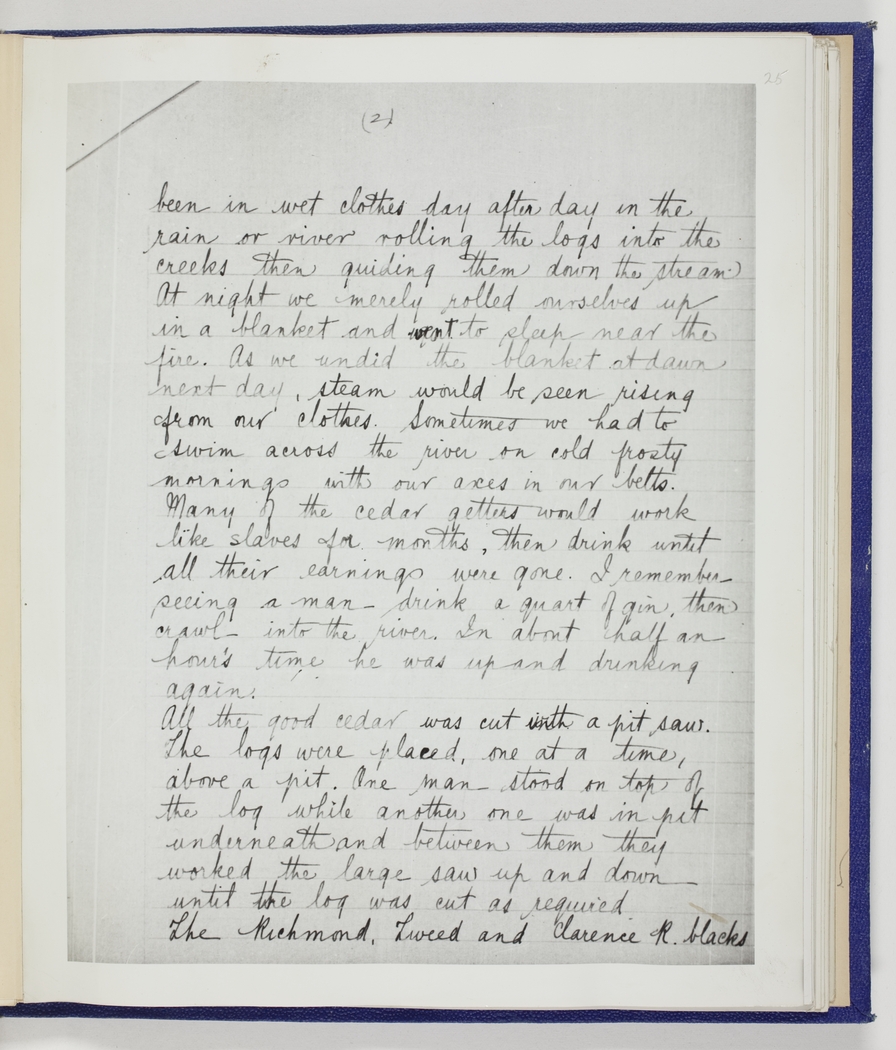 25
(2)
been in wet clothes day after day in the
rain or river rolling the logs into the
creeks then guiding them down the stream
At night we merely rolled ourselves up
in a blanket and went to sleep near the
fire. As we undid the blanket at dawn
next day, steam would be seen rising
from our clothes. Sometimes we had to
swim across the river on cold frosty
mornings with our axes in our belts.
Many of the cedar getters would work
like slaves for months, then drink until
all their earnings were gone. I remember
seeing a man drink a quart of gin, then
crawl into the river. In about half an
hour's time he was up and drinking
again.
All the good cedar was cut with a pit saw.
The logs were placed, one at a time,
above a pit. One man stood on top of
the log while another one was in pit
underneath and between them they
worked the large saw up and down
until the log was cut as required
The Richmond, Tweed and Clarence R. blacks